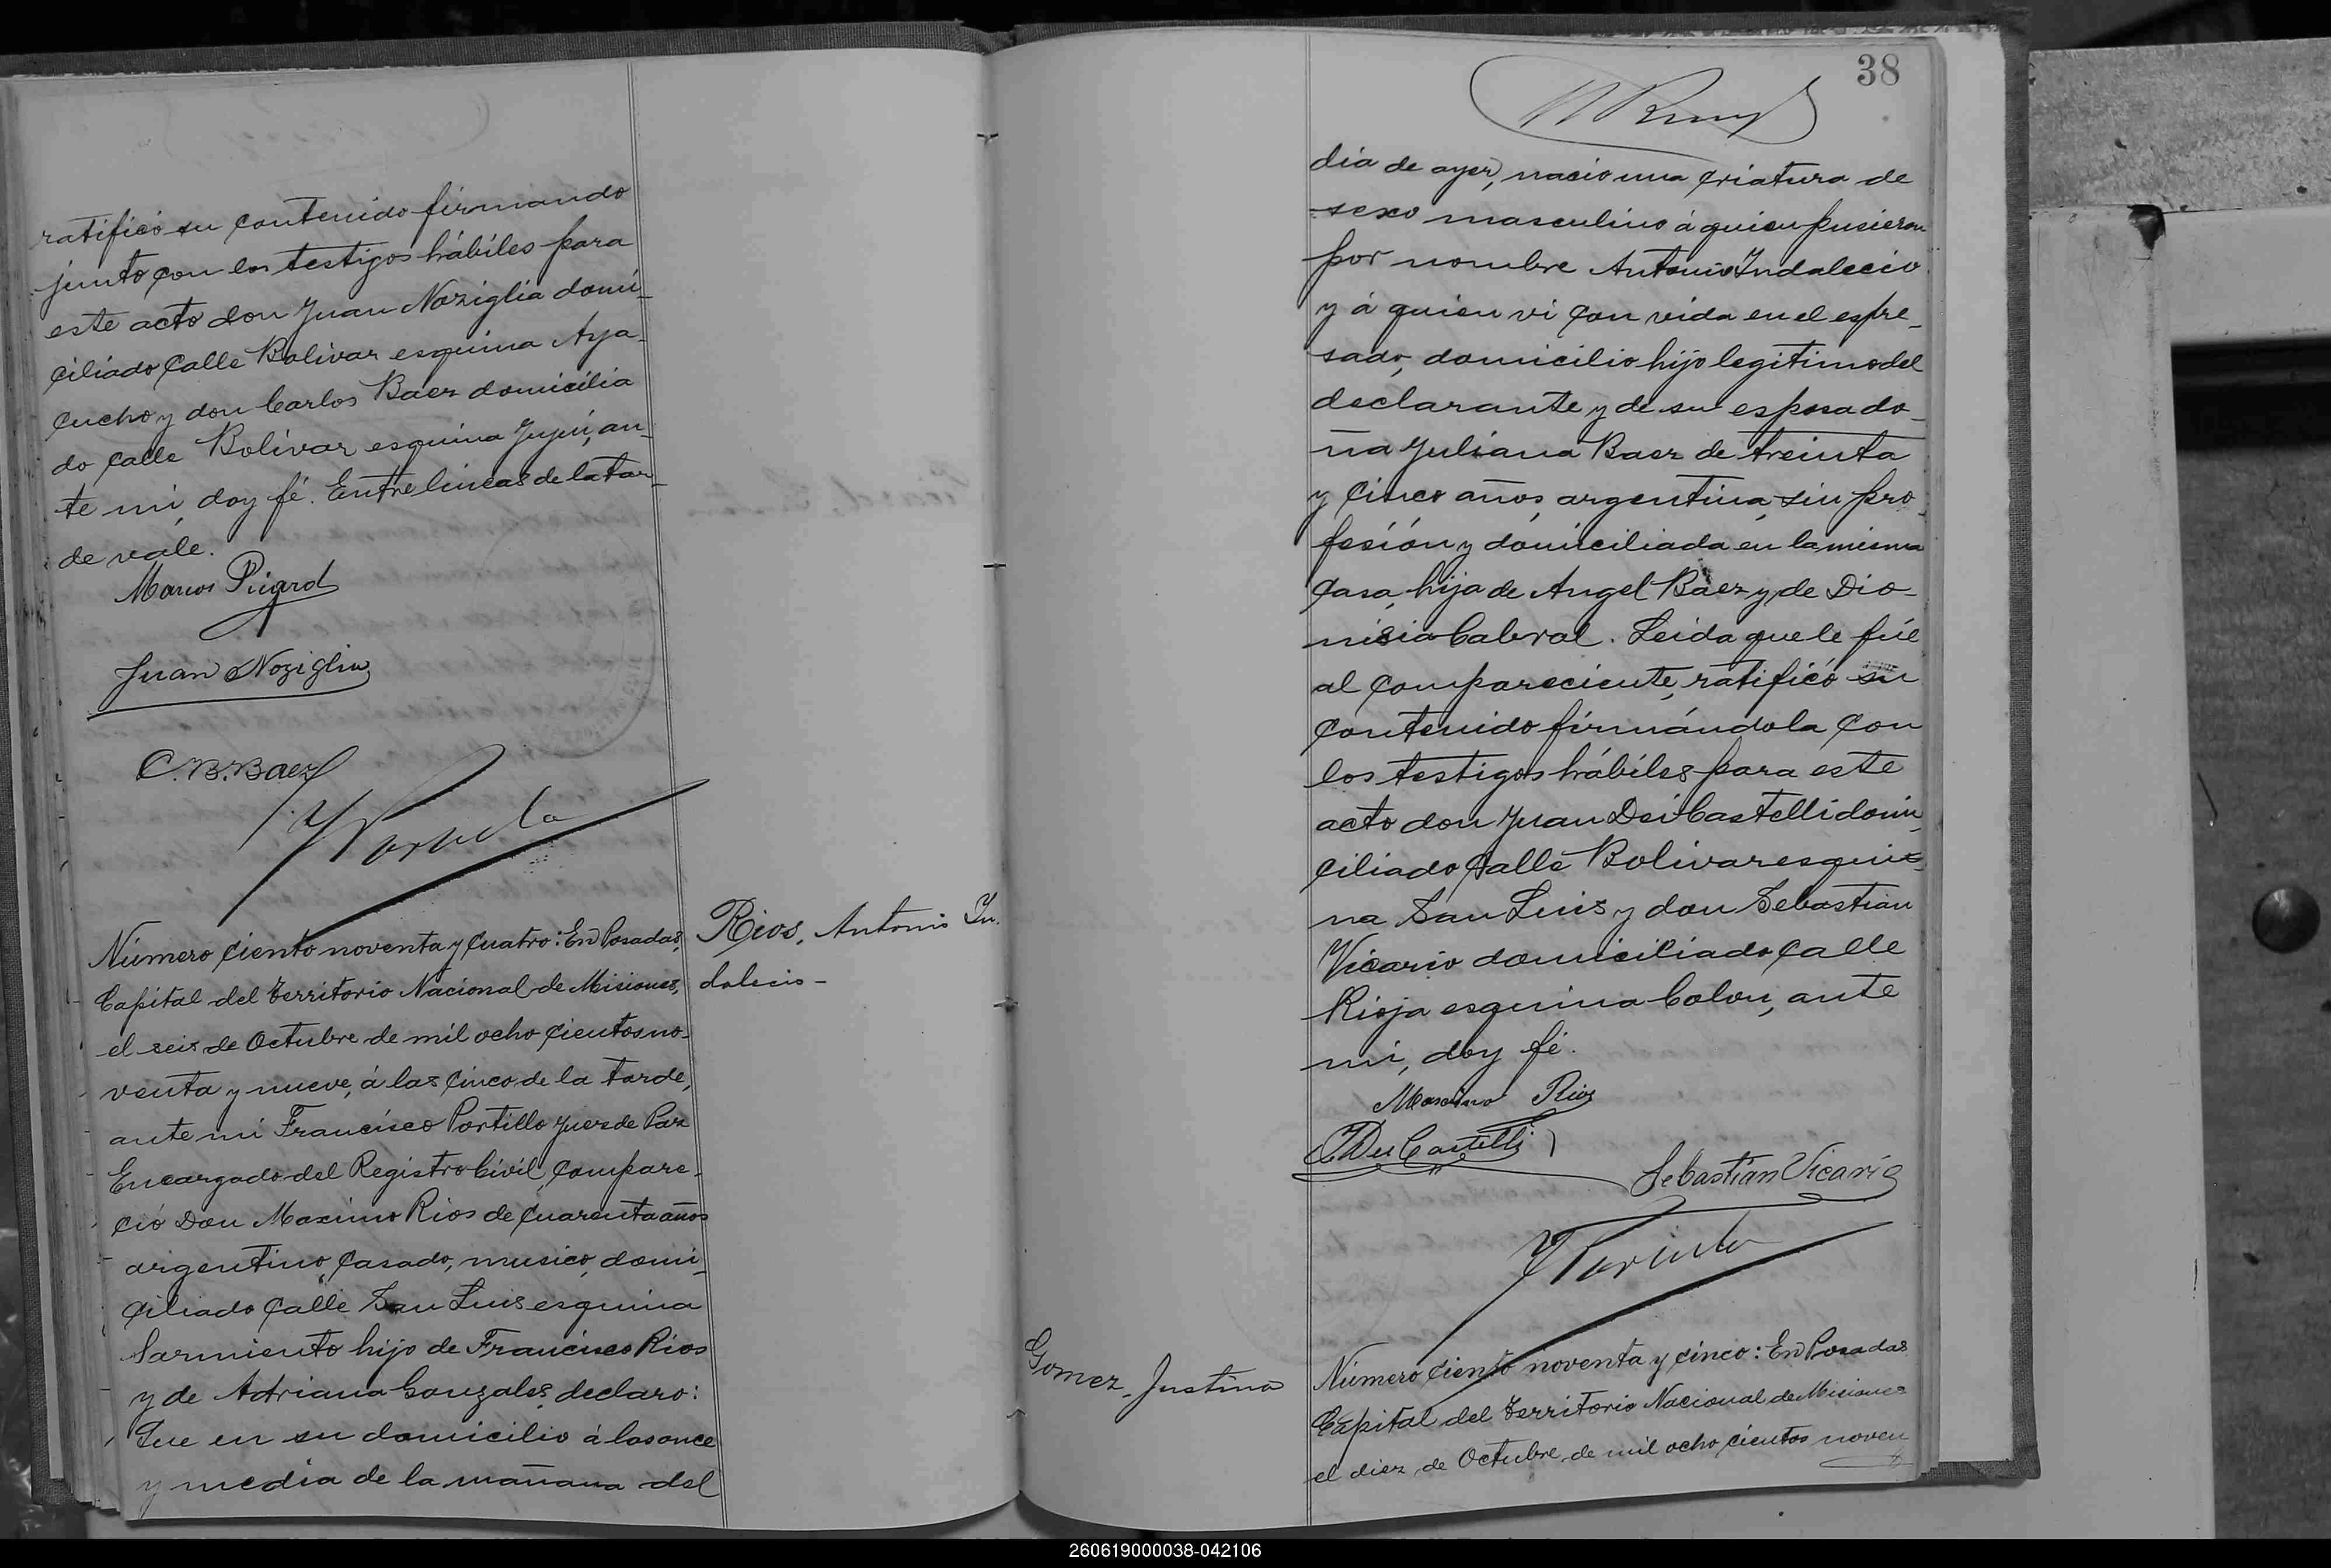 ratificó su contenido firmando
junto con los testigos hábiles para
este acto don Juan Noziglia domi-
ciliado calle Bolivar esquina Aya-
cucho y don Carlos Baez domicilia
do calle Bolívar esquina Jujui, an-
te mi, doy fé. Entre lineas de la tar-
de vale.
Marcos Pigard
Juan Noziglia
C. B. Baez
Número ciento noventa y cuatro: En Posadas,
Capital del Territorio Nacional de Misiones,
el seis de Octubre de mil ocho cientos no-
venta y nueve, á las cinco de la tarde,
ante mi Francisco Portillo Juez de Paz
Encargado del Registro Civil, compare-
ció Don Maximo Rios de cuarenta años
argentino, casado, musico, domi-
ciliado calle San Luis esquina
Sarmiento hijo de Francisco Rios
y de Adriana Gonzales, declaro:
Que en su domicilio á las once
y media de la mañana del
Rios, Antonio In-
dalecio -
38
dia de ayer, nacio una criatura de
sexo masculino á quien pusieron
por nombre Antonio Indalecio
y á quien vi con vida en el espre-
sado, domicilio hijo legitimo del
declarante y de su esposa do-
ña Juliana Baez de treinta
y cinco años, argentina, sin pro-
fesión y domiciliada en la misma
casa, hija de Angel Baez y de Dio-
nisia Cabral. Leida que le fué
al compareciente, ratificó su
contenido firmándola con
los testigos hábiles para este
acto don Juan Dei Castelli domi-
ciliado calle Bolivar esqui-
na San Luis y don Sebastian
Vicario domiciliado calle
Rioja esquina Colon, ante
mi, doy fé.
Maximo Rios
J Dei Castelli
Sebastian Vicario
Gomez, Justina
Número ciento noventa y cinco: En Posadas
Capital del Territorio Nacional de Misiones
el diez de Octubre de mil ocho cientos noven
260619000038-042106